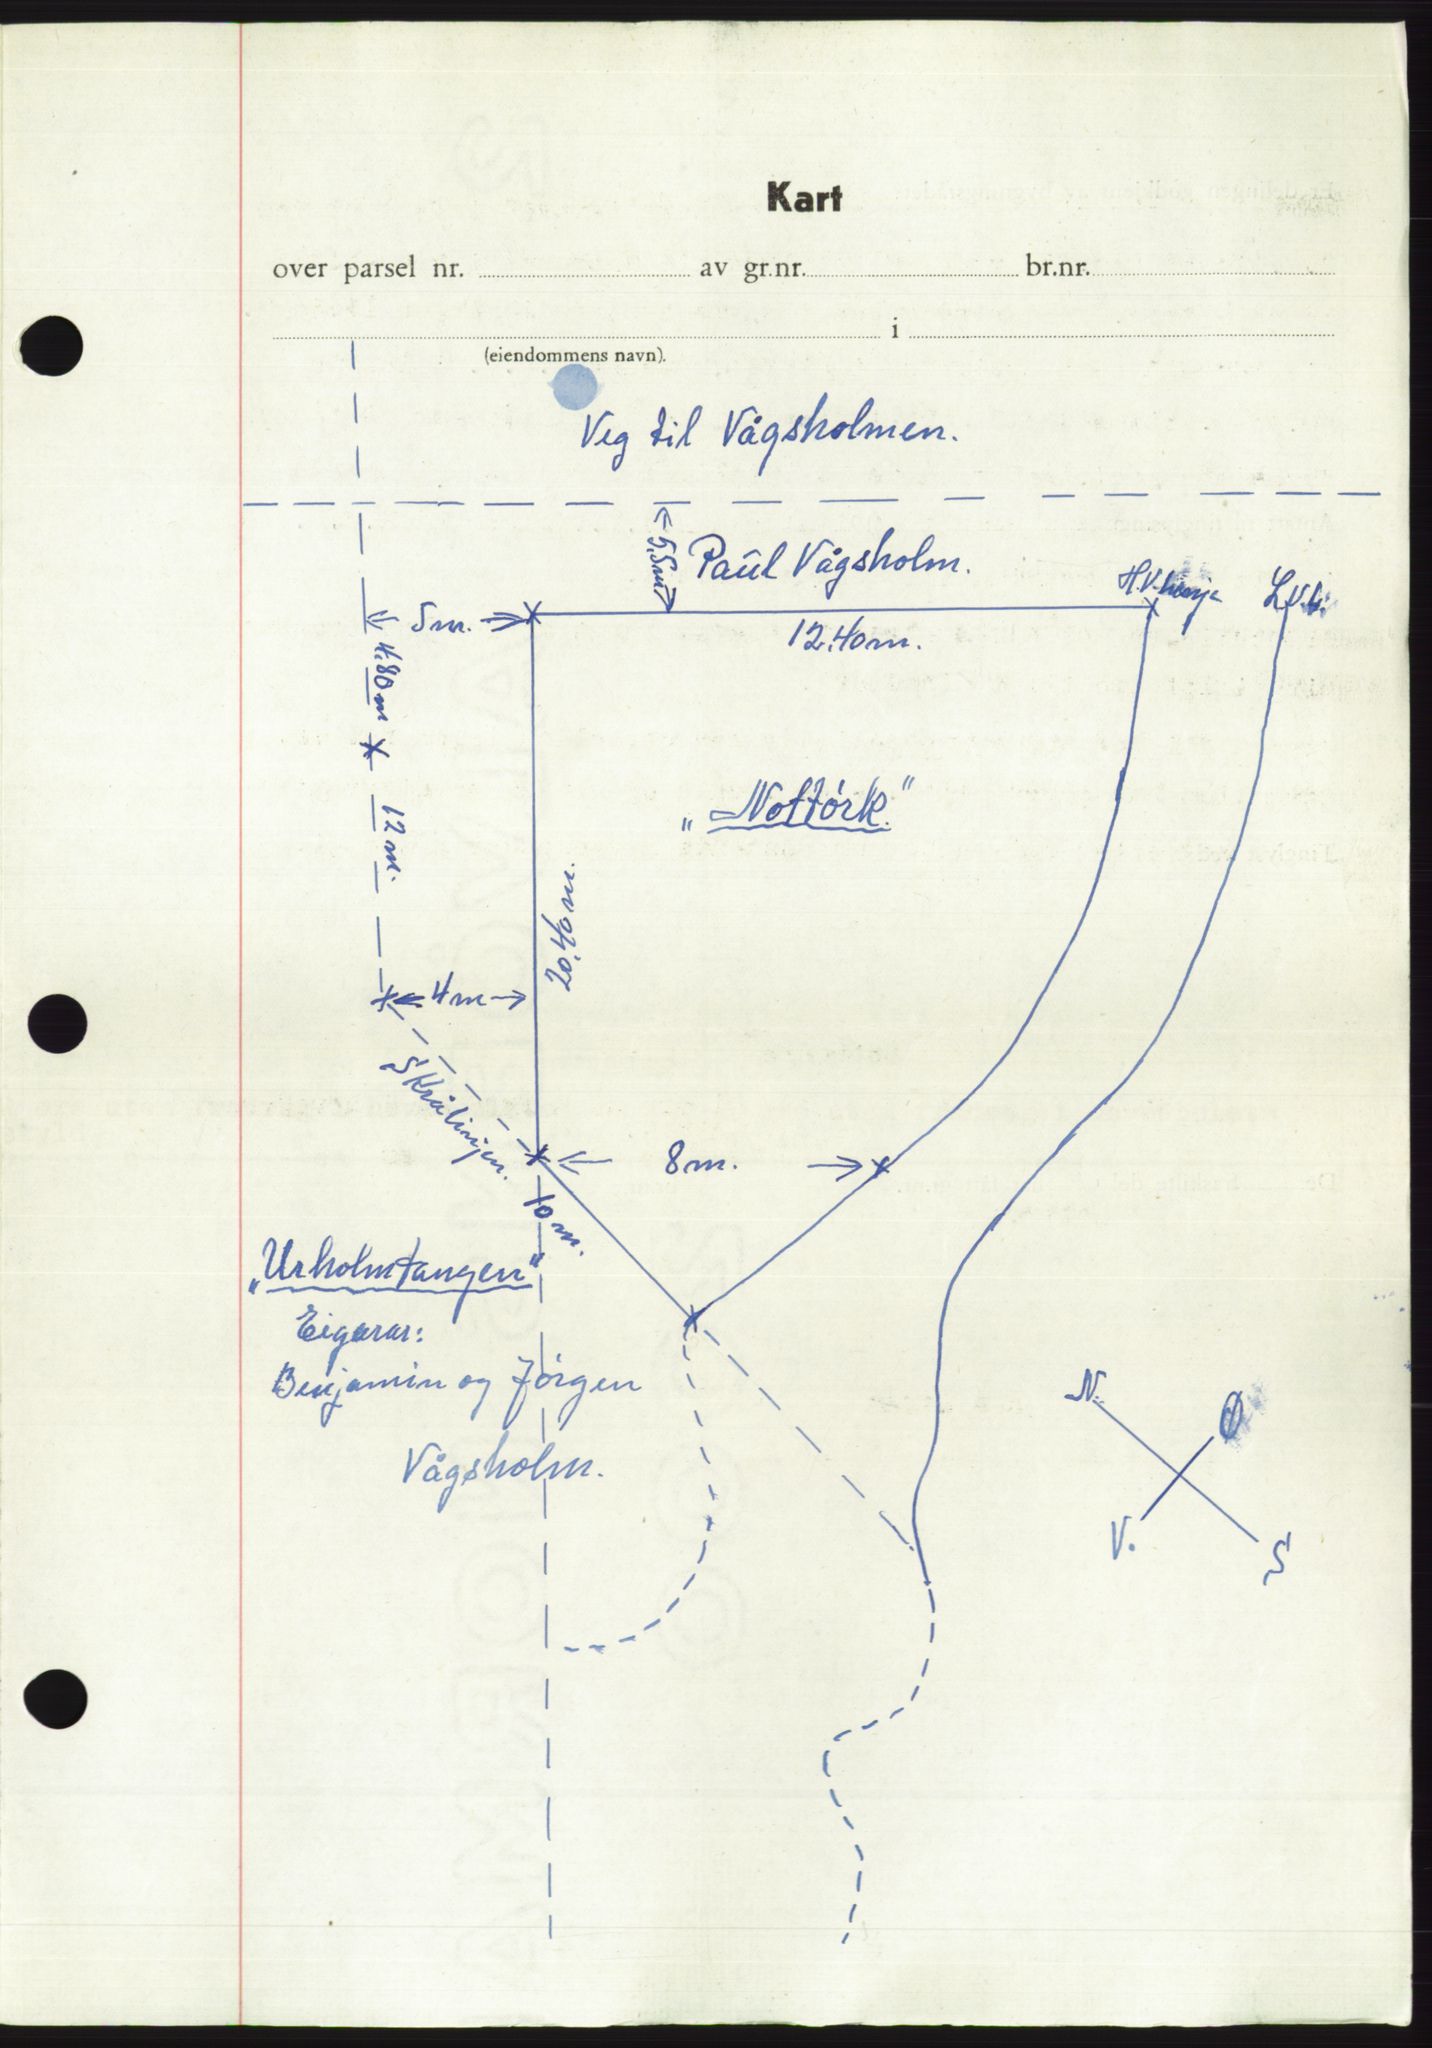 Kart
over parsel nr. av gr.nr. br.nr.
i
(eiendommens navn).
Veg til Vågsholmen.
5.5m
Paul Vågsholm.
H.V.linje
L.V.L.
5m.
12.40m.
4.80m
12m.
"Nottørk."
20.40m.
4m
Skrålinjen.
8m.
10m.
"Urholmtangen"
Eigarar:
Benjamin og Jørgen
Vågsholm.
N.
Ø
V.
S